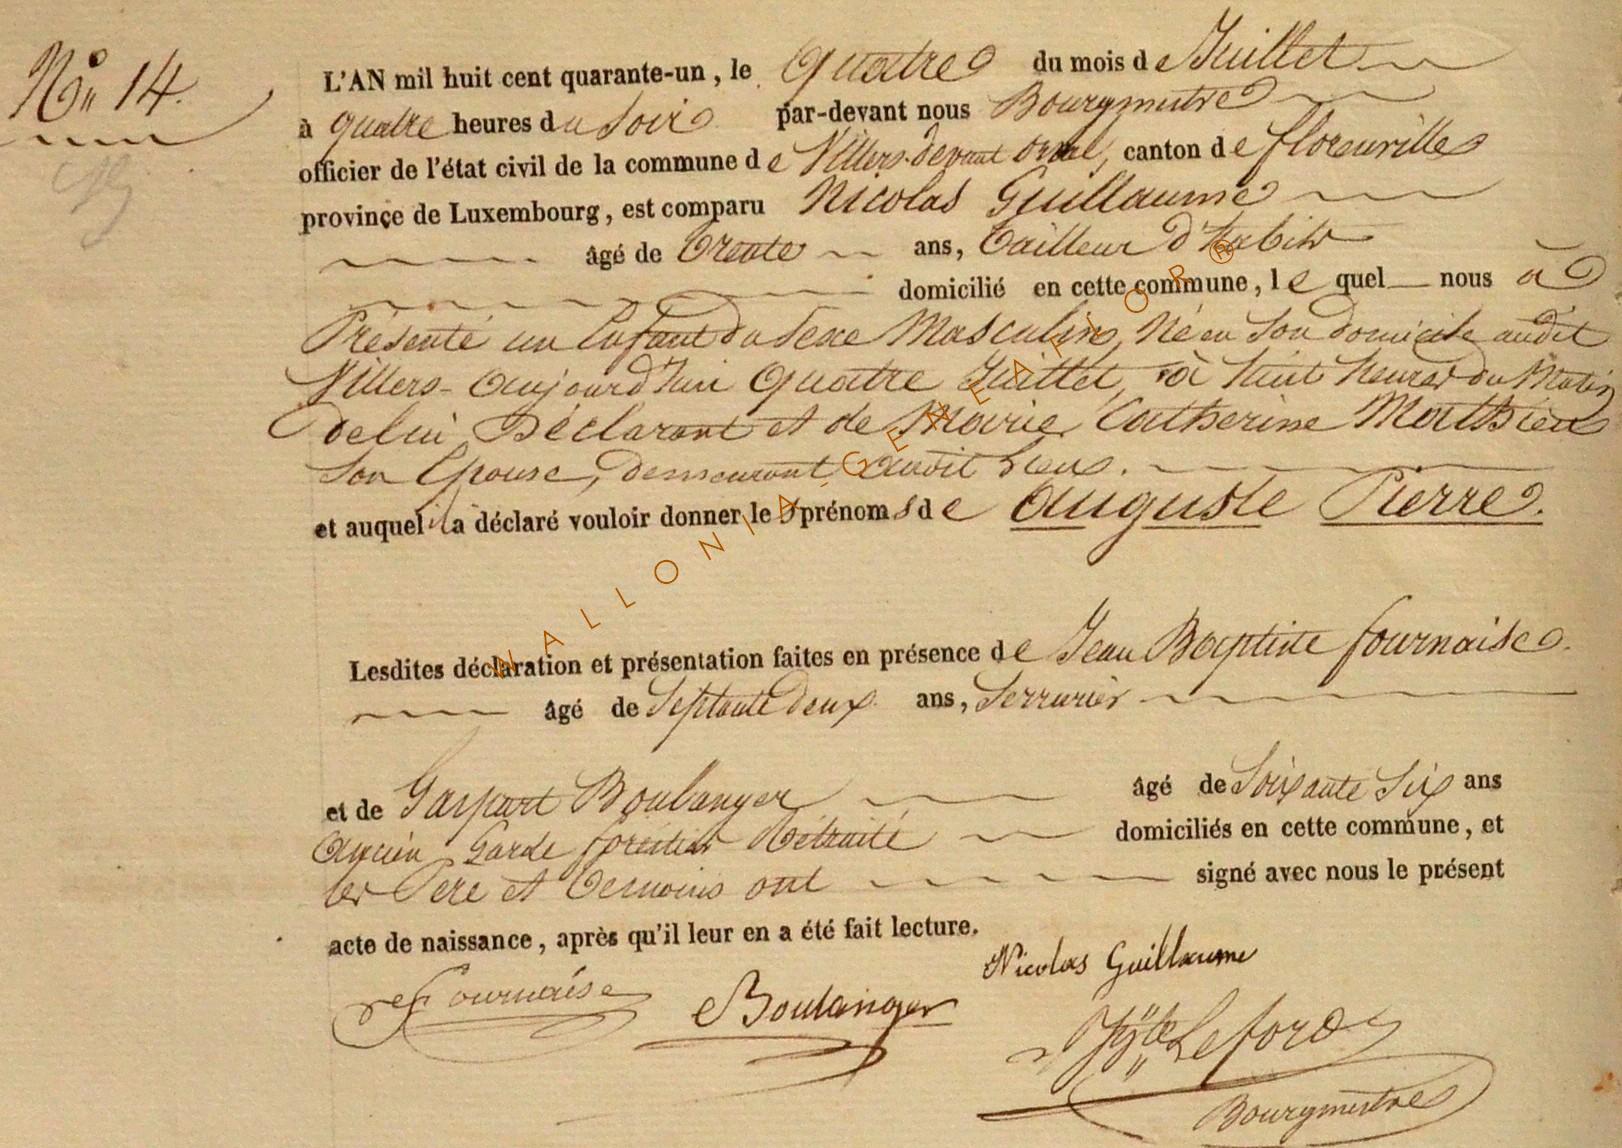 N° 14.
L'AN mil huit cent quarante-un, le Quatre du mois de Juillet
à quatre heures du Soir par-devant nous Bourgmestre
officier de l'état civil de la commune de Villers-devant orval, canton de florenville
province de Luxembourg, est comparu Nicolas Guillaume
âgé de trente ans, tailleur d'habits
domicilié en cette commune, lequel nous a
Présenté un Enfant du Sexe Masculin, Né en Son domicile audit
Villers-aujourd'hui Quatre Juillet, à huit heures du Matin
de lui Déclarant et de Marie Catherine Mathieu
Son Epouse, demeurant audit Lieu.
et auquel il a déclaré vouloir donner les prénoms de Auguste Pierre.
Lesdites déclaration et présentation faites en présence de Jean Baptiste fournaise.
âgé de Septante deux ans, Serrurier
et de Gaspart Boulanger âgé de Soixante Six ans
Ancien Garde forestier Rétraité domiciliés en cette commune, et
les Père et témoins ont signé avec nous le présent
acte de naissance, après qu'il leur en a été fait lecture.
Nicolas Guillaume
Fournaise
Boulanger
Hyte Leford
Bourgmestre
WALLONIA-GENEAFLOR®